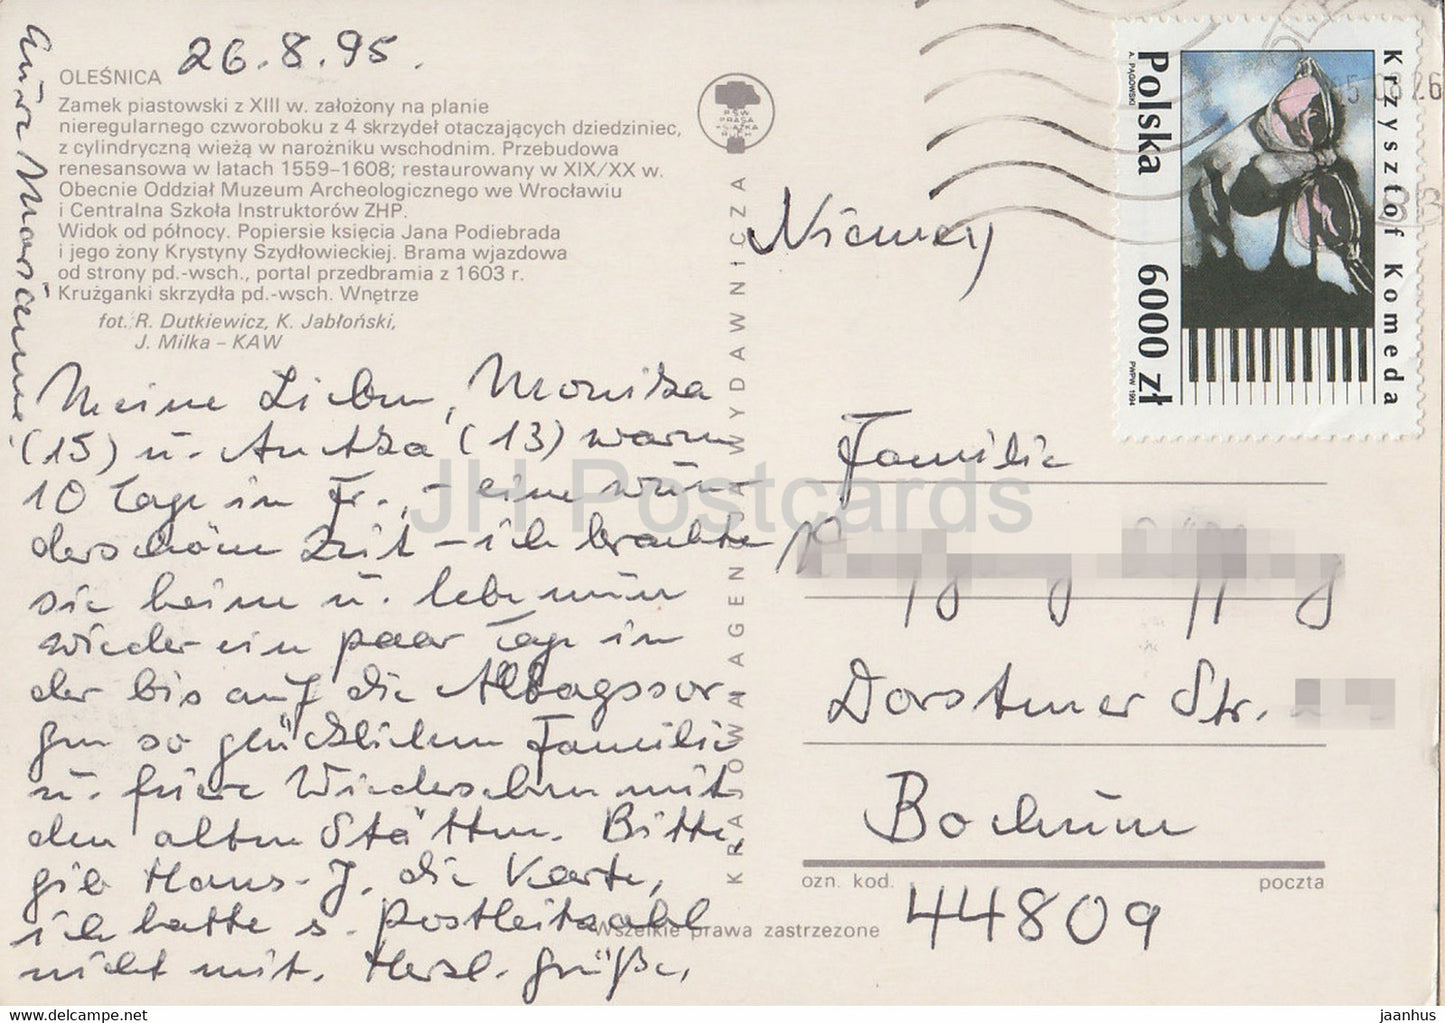 26.8.95.
OLEŚNICA
Zamek piastowski z XIII w. założony na planie
nieregularnego czworoboku z 4 skrzydeł otaczających dziedziniec,
z cylindryczną wieżą w narożniku wschodnim. Przebudowa
renesansowa w latach 1559–1608; restaurowany w XIX/XX w.
Obecnie Oddział Muzeum Archeologicznego we Wrocławiu
i Centralna Szkoła Instruktorów ZHP.
Widok od północy. Popiersie księcia Jana Podiebrada
i jego żony Krystyny Szydłowieckiej. Brama wjazdowa
od strony pd.-wsch., portal przedbramia z 1603 r.
Krużganki skrzydła pd.-wsch. Wnętrze
fot. R. Dutkiewicz, K. Jabłoński,
J. Milka – KAW
Meine Lieben, Monika
(15) u. Antka (13) waren
10 Tage in Fr., - eine wun-
derschöne Zeit - ich brachte
sie heim u. lebe nun
wieder ein paar Tage in
der bis auf die Alltagssor-
gen so glücklichen Familie
u. feiere Wiedersehen mit
den alten Stätten. Bitte
gib Hans-J. die Karte,
ich hatte s. Postleitzahl
nicht mit. Herzl. Grüße,
Eure
KRAJOWA AGENCJA WYDAWNICZA
RSW PRASA KSIĄŻKA RUCH
Niemcy
Familie
Dorstener Str.
Bochum
ozn. kod.
poczta
44809
Wszelkie prawa zastrzeżone
Polska 6000 zł
A. PĄGOWSKI
PWPW 1994
Krzysztof Komeda
JH Postcards
www.hippostcard.com
jaanhus